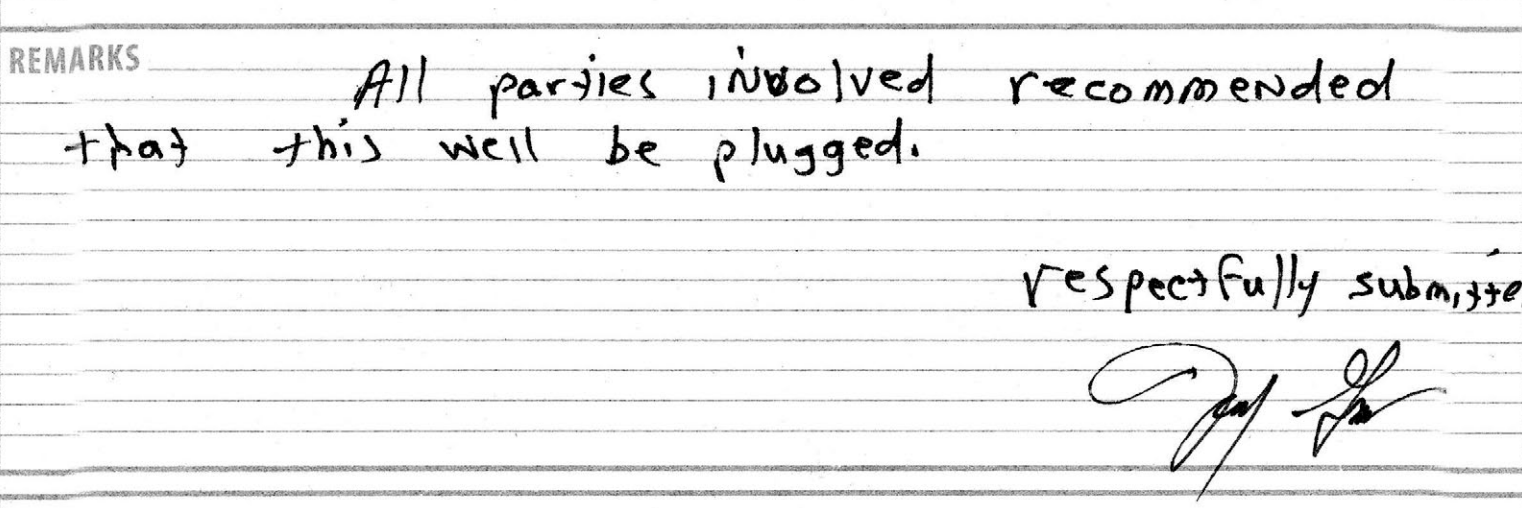 REMARKS
All parties involved recommended
that this well be plugged.
respectfully submitte